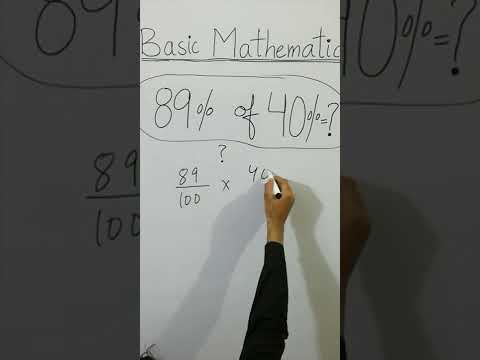 Basic Mathematic
89% of 40%=?
?
89
100
x
40